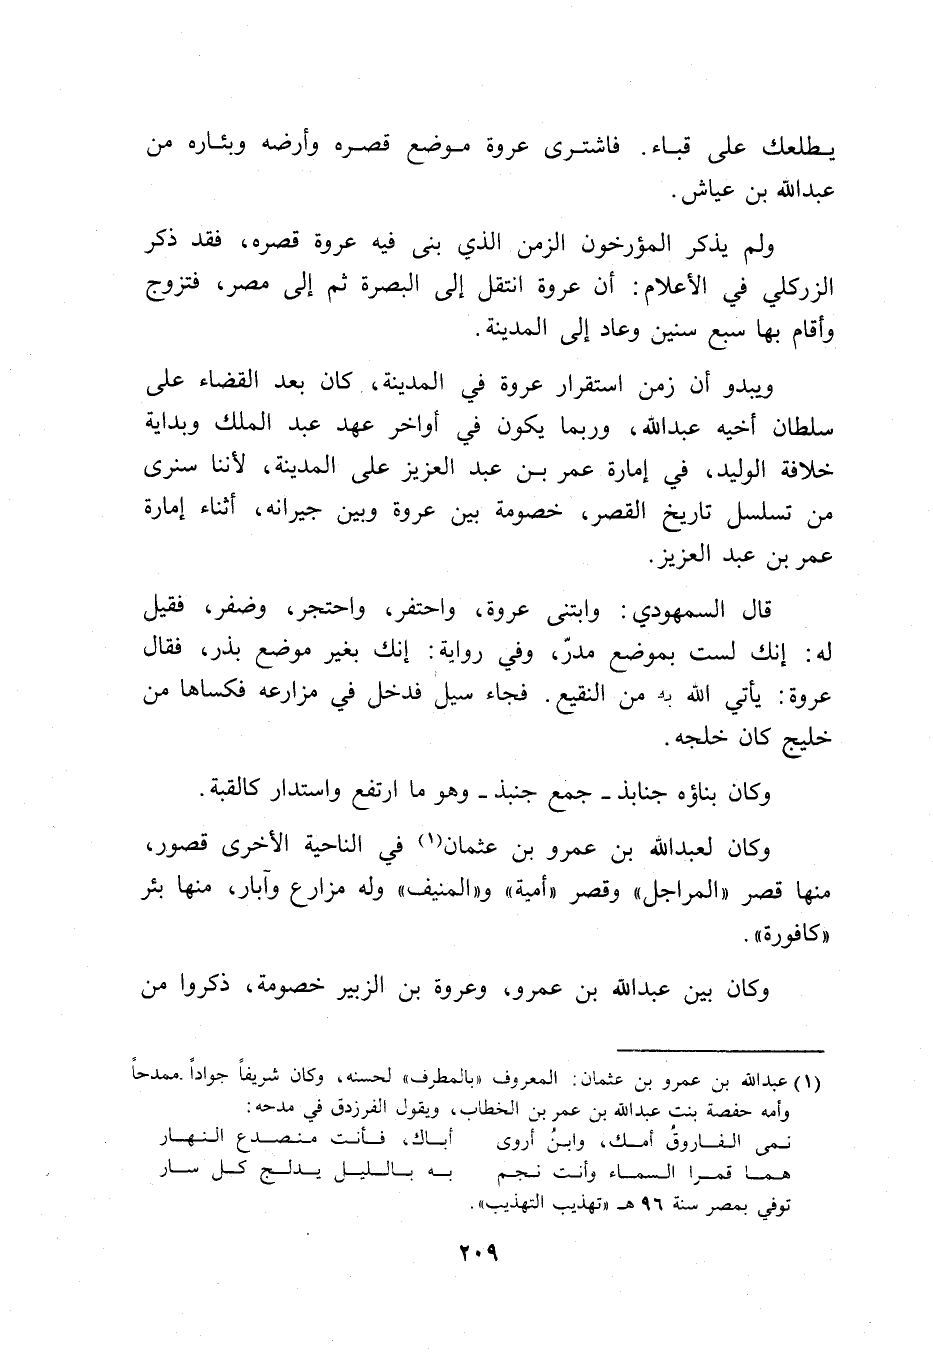 يطلعك على قباء. فاشترى عروة موضع قصره وأرضه وبئاره من
عبدالله بن عياش.
ولم يذكر المؤرخون الزمن الذي بنى فيه عروة قصره، فقد ذكر
الزركلي في الأعلام: أن عروة انتقل إلى البصرة ثم إلى مصر، فتزوج
وأقام بها سبع سنين وعاد إلى المدينة.
ويبدو أن زمن استقرار عروة في المدينة، كان بعد القضاء على
سلطان أخيه عبدالله، وربما يكون في أواخر عهد عبد الملك وبداية
خلافة الوليد، في إمارة عمر بن عبد العزيز على المدينة، لأننا سنرى
من تسلسل تاريخ القصر، خصومة بين عروة وبين جيرانه، أثناء إمارة
عمر بن عبد العزيز.
قال السمهودي: وابتنى عروة، واحتفر، واحتجر، وضفر، فقيل
له: إنك لست بموضع مدرّ، وفي رواية: إنك بغير موضع بذر، فقال
عروة: يأتي الله به من النقيع. فجاء سيل فدخل في مزارعه فكساها من
خليج كان خلجه.
وكان بناؤه جنابذ ـ جمع جنبذ ـ وهو ما ارتفع واستدار كالقبة.
وكان لعبدالله بن عمرو بن عثمان(١) في الناحية الأخرى قصور،
منها قصر «المراجل» وقصر «أمية» و«المنيف» وله مزارع وآبار، منها بئر
«كافورة».
وكان بين عبدالله بن عمرو، وعروة بن الزبير خصومة، ذكروا من
(١) عبدالله بن عمرو بن عثمان: المعروف «بالمطرف» لحسنه، وكان شريفاً جواداً ممدحاً
وأمه حفصة بنت عبدالله بن عمر بن الخطاب، ويقول الفرزدق في مدحه:
نمى الفاروقُ أمك، وابنُ أروى أباك، فأنت منصدع النهار
هما قمرا السماء وأنت نجم به بالليل يدلج كل سار
توفي بمصر سنة ٩٦ هـ «تهذيب التهذيب».
٢٠٩